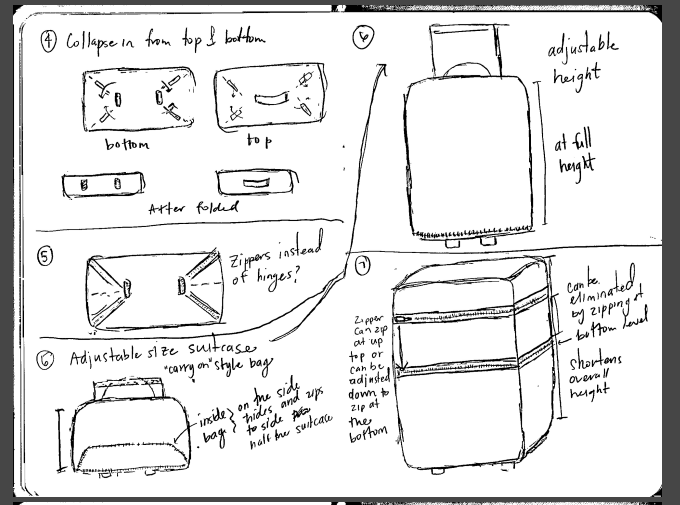 ④ Collapse in from top & bottom
bottom
top
After folded
⑤
Zippers instead
of hinges?
⑥ Adjustable size suitcase
"carry on" style bag
inside
bag
on the side
hides and zips
to side
half the suitcase
⑥
adjustable
height
at full
height
⑦
Zipper
can zip
at up
top or
can be
adjusted
down to
zip at
the
bottom
can be
eliminated
by zipping at
bottom level
shortens
overall
height